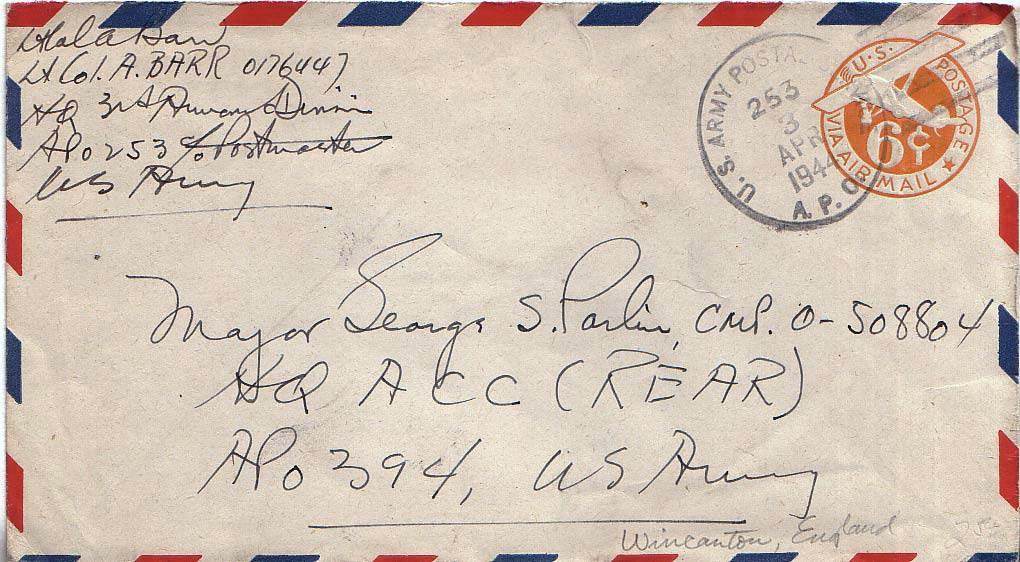 Lt Col. A. BARR 0176447
HQ 3rd Armored Division
APO 253 c/o Postmaster
US Army
U.S. ARMY POSTAL
253
3
APR
194
A.P.O.
U.S. POSTAGE
6¢
VIA AIR MAIL
Major George S. Parlin, CMP. O-508804
HQ ACC (REAR)
APO 394, US Army
Wincanton, England